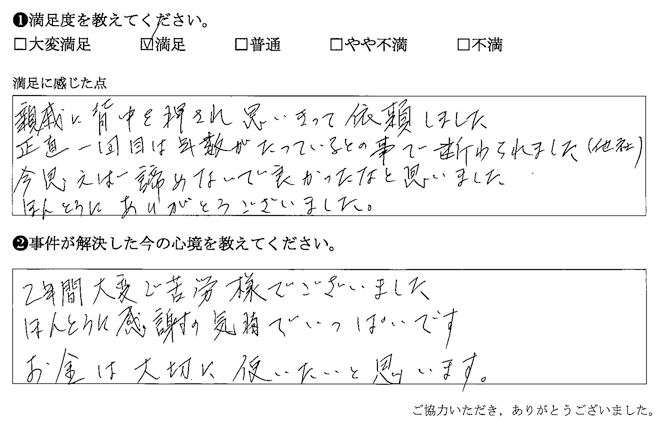 ❶満足度を教えてください。
□大変満足 ☑満足 □普通 □やや不満 □不満
満足に感じた点
親戚に背中を押され思いきって依頼しました
正直一回目は年数がたっているとの事で断わられました(他社)
今思えば諦めないで良かったなと思いました
ほんとうにありがとうございました。
❷事件が解決した今の心境を教えてください。
2年間大変ご苦労様でございました
ほんとうに感謝の気持でいっぱいです
お金は大切に使いたいと思います。
ご協力いただき,ありがとうございました。